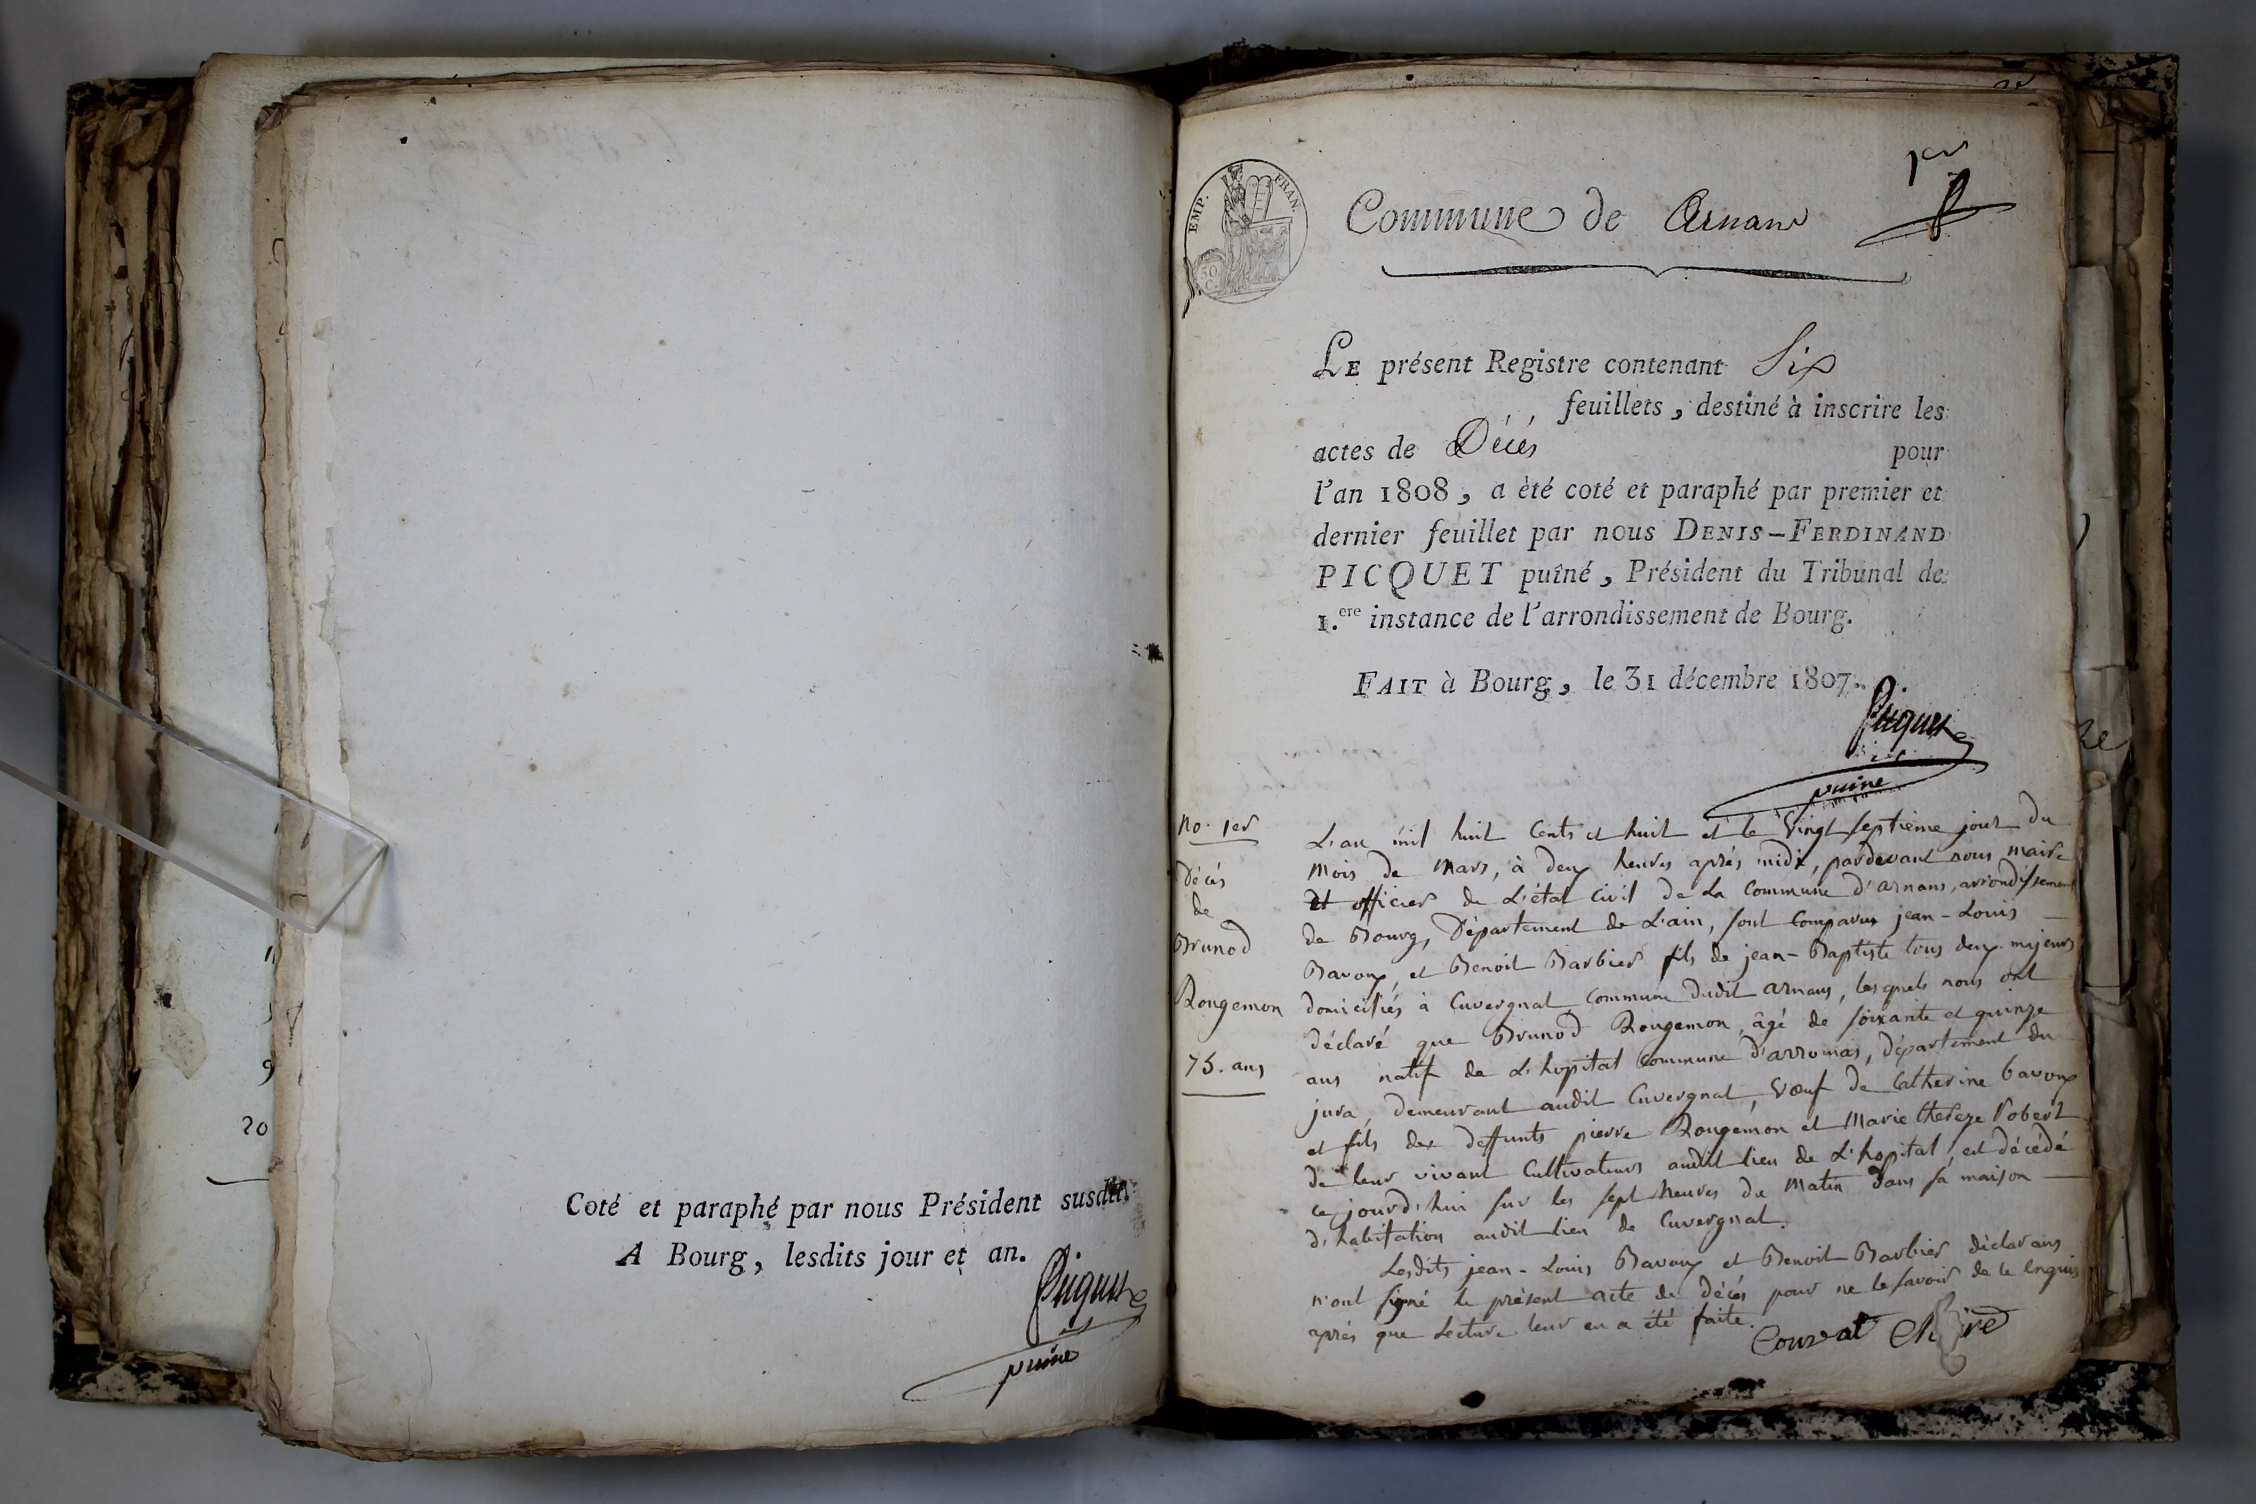 Coté et paraphé par nous Président susdit.
A Bourg, lesdits jour et an.
Picquet
puîné
20
9
1er
EMP. FRAN.
50 C.
Commune de Arnans
LE présent Registre contenant Six
feuillets, destiné à inscrire les
actes de Décés pour
l'an 1808, a été coté et paraphé par premier et
dernier feuillet par nous DENIS-FERDINAND
PICQUET puîné, Président du Tribunal de
1.ere instance de l'arrondissement de Bourg.
FAIT à Bourg, le 31 décembre 1807.
Picquet
puiné
No. 1er
Décés
de
Brunod
Rougemon
75. ans
L'an mil huit Cents et huit et le Vingt septième jour du
Mois de Mars, à deux heures après midi, pardevant nous maire
et officier de L'état Civil de La Commune d'arnans, arrondissement
de Bourg, Département de L'ain, sont Comparus jean-Louis
Bavoux, et Benoit Barbier fils de jean-Baptiste tous deux majeurs
domiciliés à Cuvergnat Commune dudit arnans, lesquels nous ont
déclaré que Brunod Rougemon, âgé de soixante et quinze
ans natif de L'hopital Commune d'arromas, département du
jura, demeurant audit Cuvergnat, Vœuf de Catherine bavoux
et fils des deffunts pierre Rougemon et Marie thereze Robert
de leur vivant Cultivateurs audit lieu de L'hopital, est décédé
ce jourd'hui sur les sept heures du Matin dans sa maison
d'habitation audit lieu de Cuvergnat.
Lesdits jean-Louis Bavoux et Benoit Barbier déclarans
n'ont signé le présent acte de décés pour ne le savoir de ce enquis
après que Lecture leur en a été faite.
Convat Maire